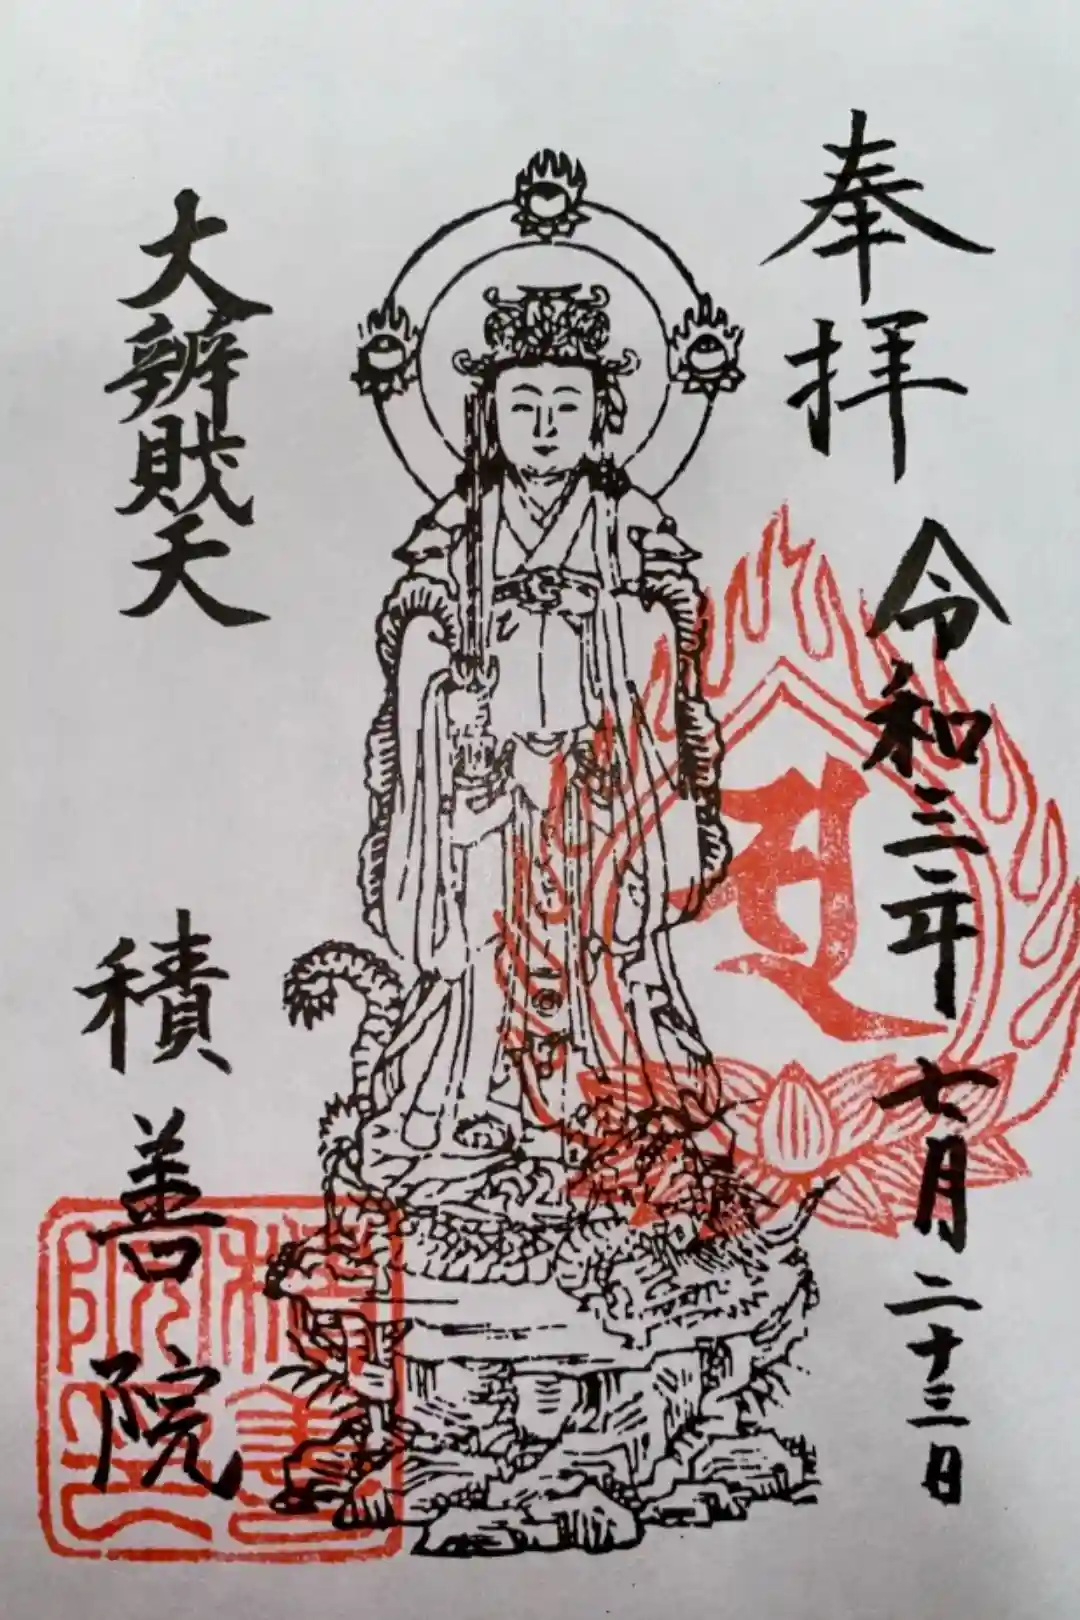 奉拝
令和三年七月二十三日
大辨財天
積善院